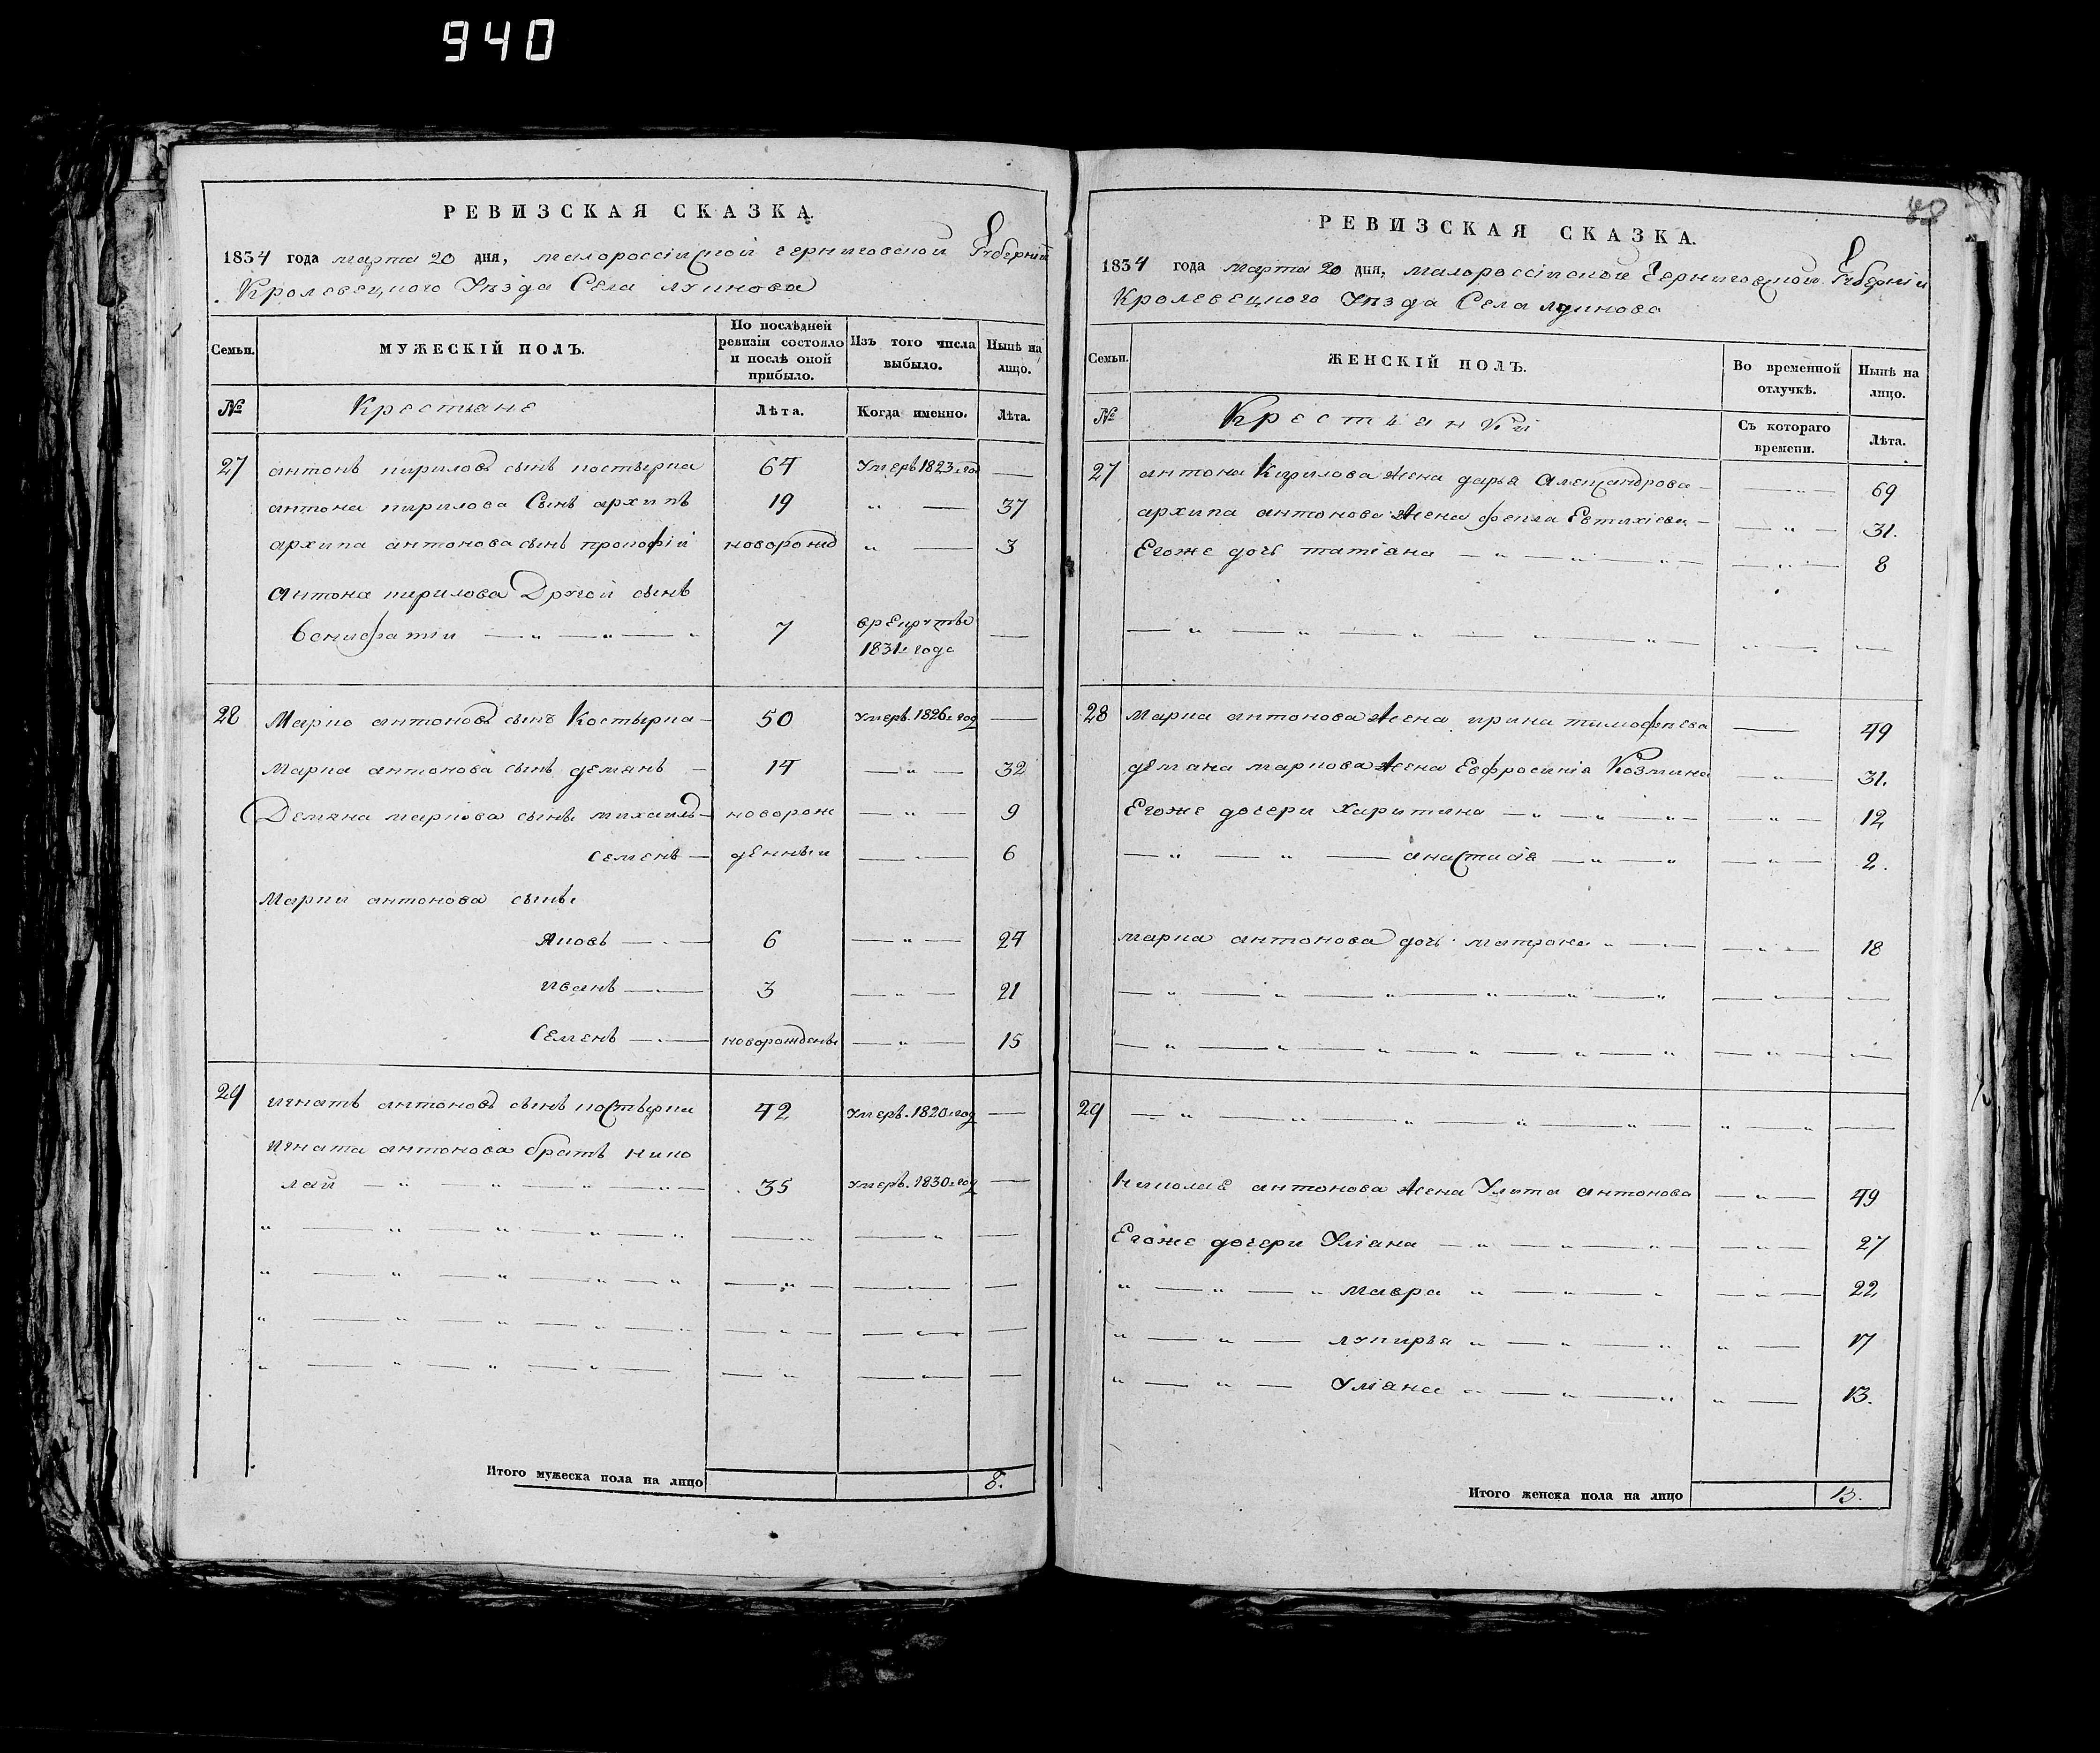 940
РЕВИЗСКАЯ СКАЗКА.
1834 года марта 20 дня, малороссійской черниговской Губерніи
Кролевецкого Уѣзда Села лукнова
Семьи.
МУЖЕСКІЙ ПОЛЪ.
По послѣдней ревизіи состояло и послѣ оной прибыло.
Изъ того числа выбыло.
Нынѣ на лицо.
№ Крестьяне Лѣта. Когда именно. Лѣта.
27 антонъ кириловъ сынъ костырка 64 Умеръ 1823 год —
антона кирилова Сынъ архипъ 19 " — 37
архипа антонова сынъ прокофій новорожд " — 3
Антона кирилова Другой сынъ
бонифатій — " — " — " 7 врекрутъ —
1831 года
28 Марко антоновъ сынъ Костырка — 50 умеръ 1826 год —
Марка антонова сынъ демянъ — 14 — " — 32
Демяна маркова сынъ михаилъ — новорож — " — 9
семенъ — денныи — " — 6
Марки антонова сынъ
Яковъ — " — 6 — " — 24
иванъ — " — 3 — " — 21
Семенъ — " — новорожденъ — " — 15
29 игнатъ антоновъ сынъ костырка 42 Умеръ 1820 год —
игната антонова братъ нико
лай — " — " — " — " — 35 умеръ 1830 год —
Итого мужеска пола на лицо 8.
48
РЕВИЗСКАЯ СКАЗКА.
1834 года марта 20 дня, малороссійской Черниговской Губерніи
Кролевецкого Уѣзда Села лукнова
Семьи.
ЖЕНСКІЙ ПОЛЪ.
Во временной отлучкѣ.
Нынѣ на лицо.
№ Крестьянки Съ котораго времени. Лѣта.
27 антона Кирилова жена дарья Александрова — — " — 69
архипа антонова жена фекла Евтихіева — — " — 31.
Егоже дочь татіана — " — " — " — — " — 8
28 марка антонова жена ирина тимофѣева — 49
демана маркова жена Евфросинія Козмина — " — 31.
Егоже дочери Харитина — " — " — " — — " — 12
— " — " — анастасія — " — " — " — 2.
марка антонова дочь матрона " — " — — " — 18
29
Николая антонова жена Улита антонова — " — 49
Егоже дочери Уліана — " — " — " — — " — 27
" — " — " мавра " — " — " — " — 22
" — " — лукирья " — " — " " — 17
" — " — Уліана " — " — " " — 13.
Итого женска пола на лицо 13.